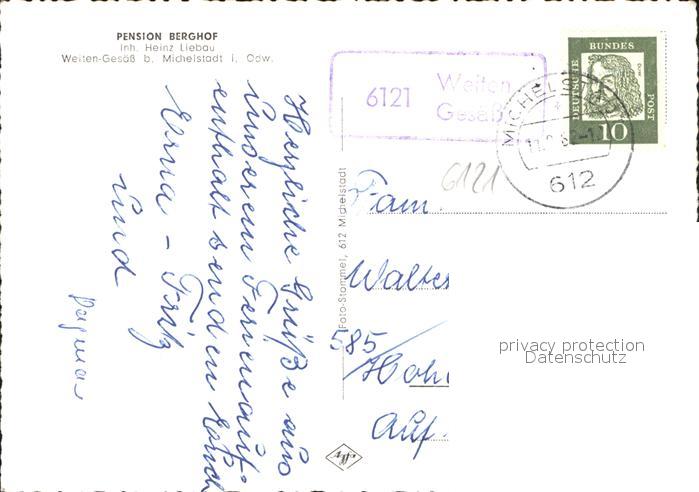 PENSION BERGHOF
Inh. Heinz Liebau
Weiten-Gesäß b. Michelstadt i. Odw.
6121 Weiten
Gesäß
DEUTSCHE
BUNDES
POST
10
MICHELSTADT
612
6121
Herzliche Grüße aus
unserem Ferienauf-
enthalt senden Euch
Erna - Fritz
und
Dagmar
Foto-Stommel, 612 Michelstadt
Fam.
Walter
585
Hohe
Auf
privacy protection
Datenschutz